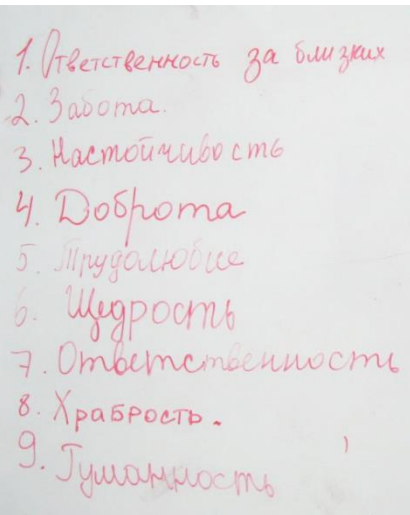 1. Ответственность за близких
2. Забота.
3. Настойчивость
4. Доброта
5. Трудолюбие
6. Щедрость
7. Ответственность
8. Храбрость.
9. Гуманность